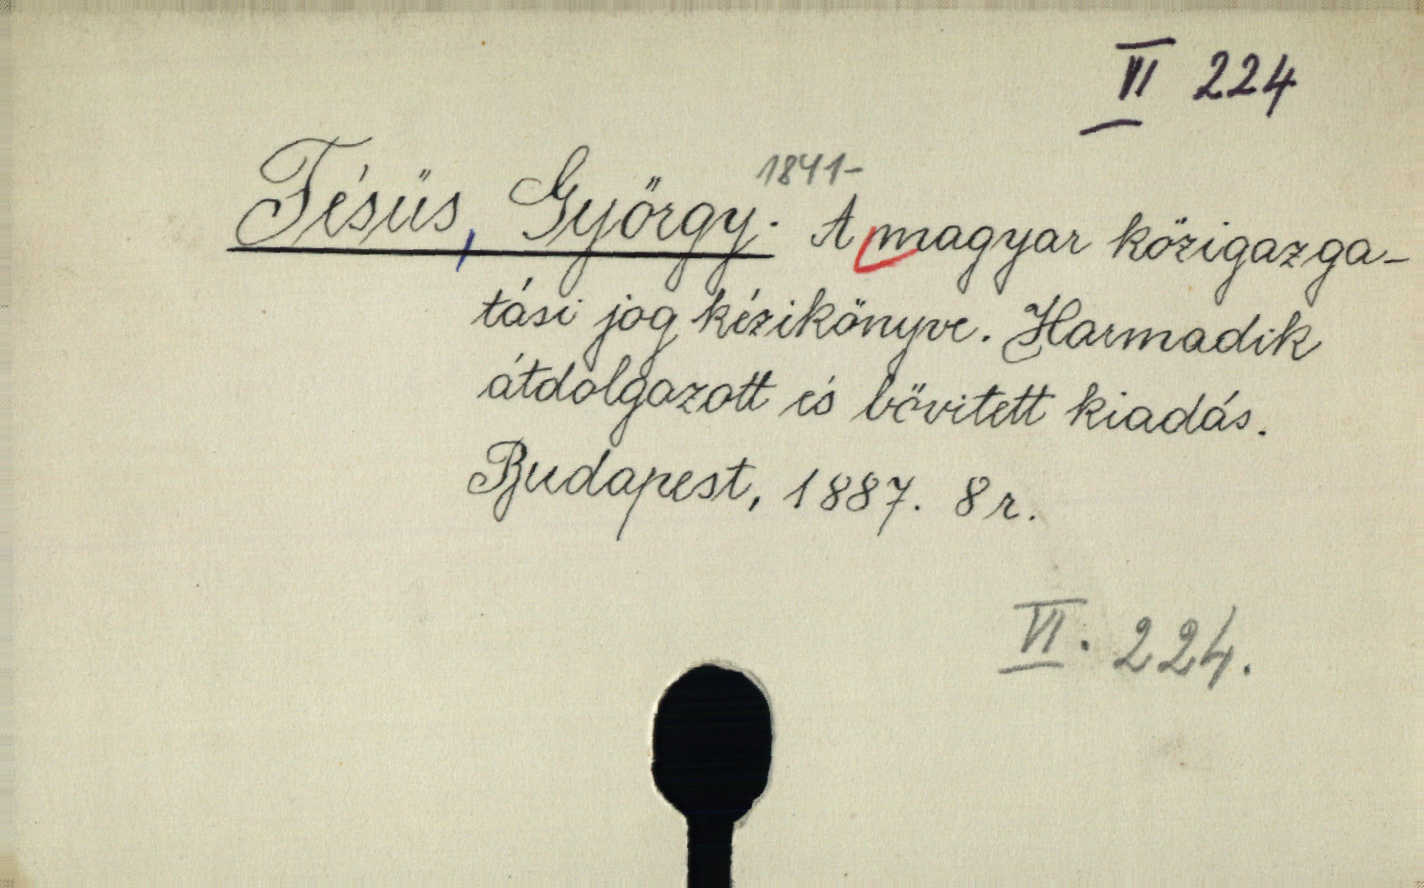 VI 224
1841-
Fésüs, György. A magyar közigazga-
tási jog kézikönyve. Harmadik
átdolgozott és bövitett kiadás.
Budapest, 1887. 8 r.
VI. 224.